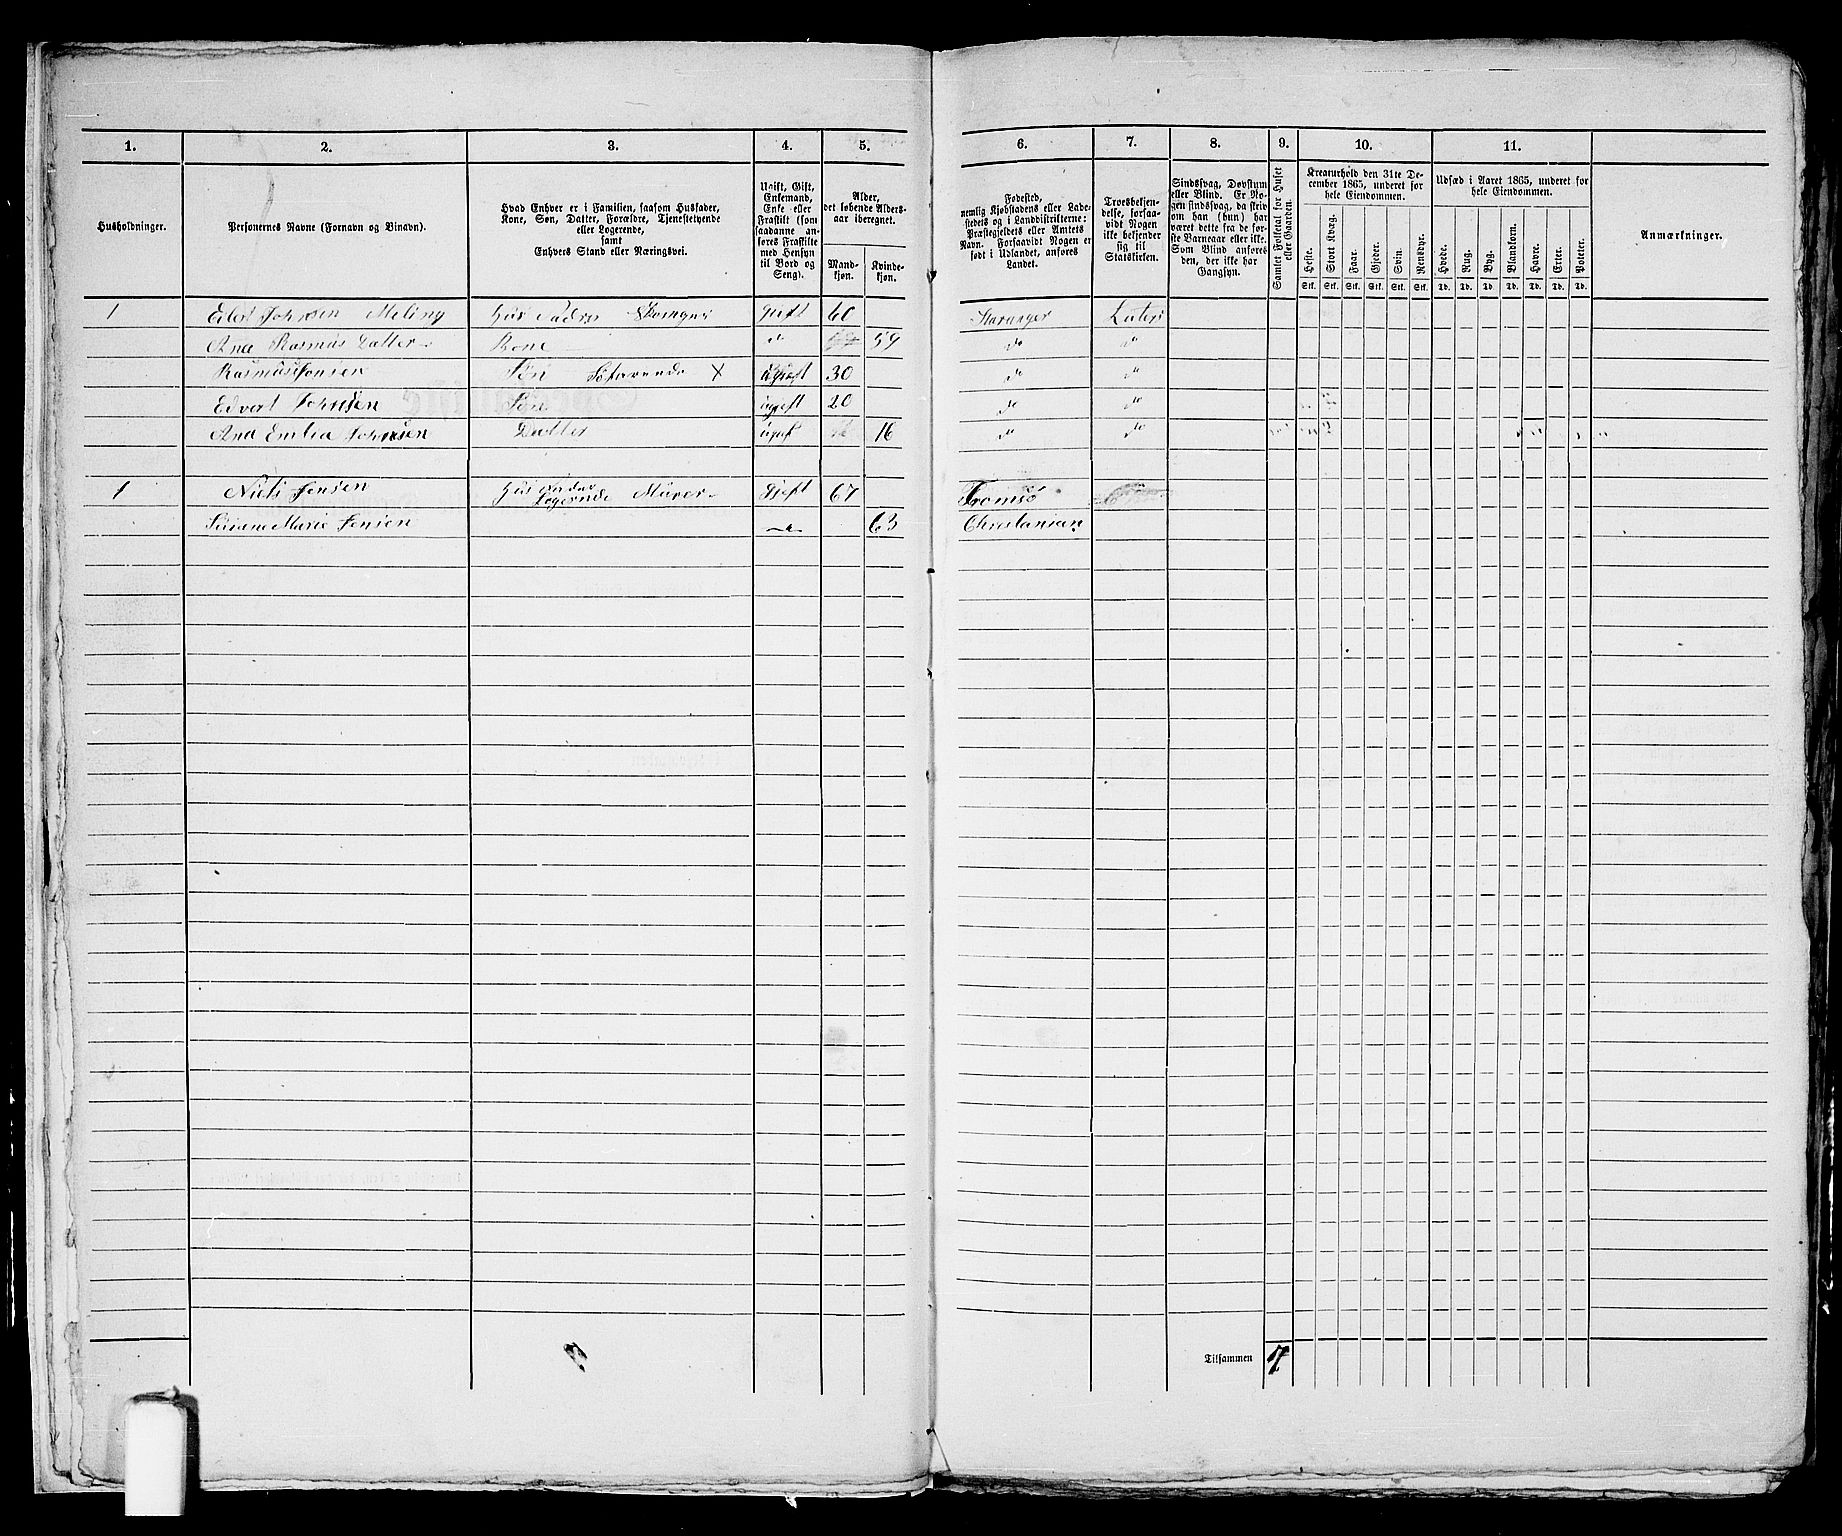 1. 2. 3. 4. 5. 6. 7. 8. 9. 10. 11.
Husholdninger.
Personernes Navne (Fornavn og Binavn).
Hvad Enhver er i Familien, saasom Husfader,
Kone, Søn, Datter, Forældre, Tjenestetyende
eller Logerende,
samt
Enhvers Stand eller Næringsvei.
Ugift, Gift,
Enkemand,
Enke eller
Fraskilt (som
saadanne an-
føres Fraskilte
med Hensyn
til Bord og
Seng).
Alder,
det løbende Alders-
aar iberegnet.
Mand-
kjøn.
Kvinde-
kjøn.
Fødested,
nemlig Kjøbstadens eller Lade-
stedets og i Landdistrikterne:
Præstegjeldets eller Amtets
Navn. Forsaavidt Nogen er
født i Udlandet, anføres
Landet.
Troesbekjen-
delse, forsaa-
vidt Nogen
ikke bekjender
sig til
Statskirken.
Sindssvag, Døvstum
eller Blind. Er No-
gen sindssvag, da skriv
om han (hun) har
været dette fra de før-
ste Barneaar eller ikke.
Som Blind anføres
den, der ikke har
Gangsyn.
Samlet Folketal for Huset
eller Gaarden.
Kreaturhold den 31te De-
cember 1865, underet for
hele Eiendommen.
Heste. Stort Kvæg. Faar. Gjeder. Svin. Rensdyr.
Stk. Stk. Stk. Stk. Stk. Stk.
Udsæd i Aaret 1865, underet for
hele Eiendommen.
Hvede. Rug. Byg. Blandkorn. Havre. Erter. Poteter.
Td. Td. Td. Td. Td. Td. Td.
Anmærkninger.
1 Johnsen Meling Hus Fader gift 60 Stavanger Luters
Ane Rasmus Datter Kone " 59 do do
Rasmus Jonsen Søn Søfarende X Ugift 30 do do
Edvart Johnsen Søn ugift 20 do do
Ana Emilia Johnsen Datter ugift 16 do do
1 Niels Jensen Hus Fader Logerende Murer gift 67 Tromsö
Marie Jensen 63 Christanian
Tilsammen 7